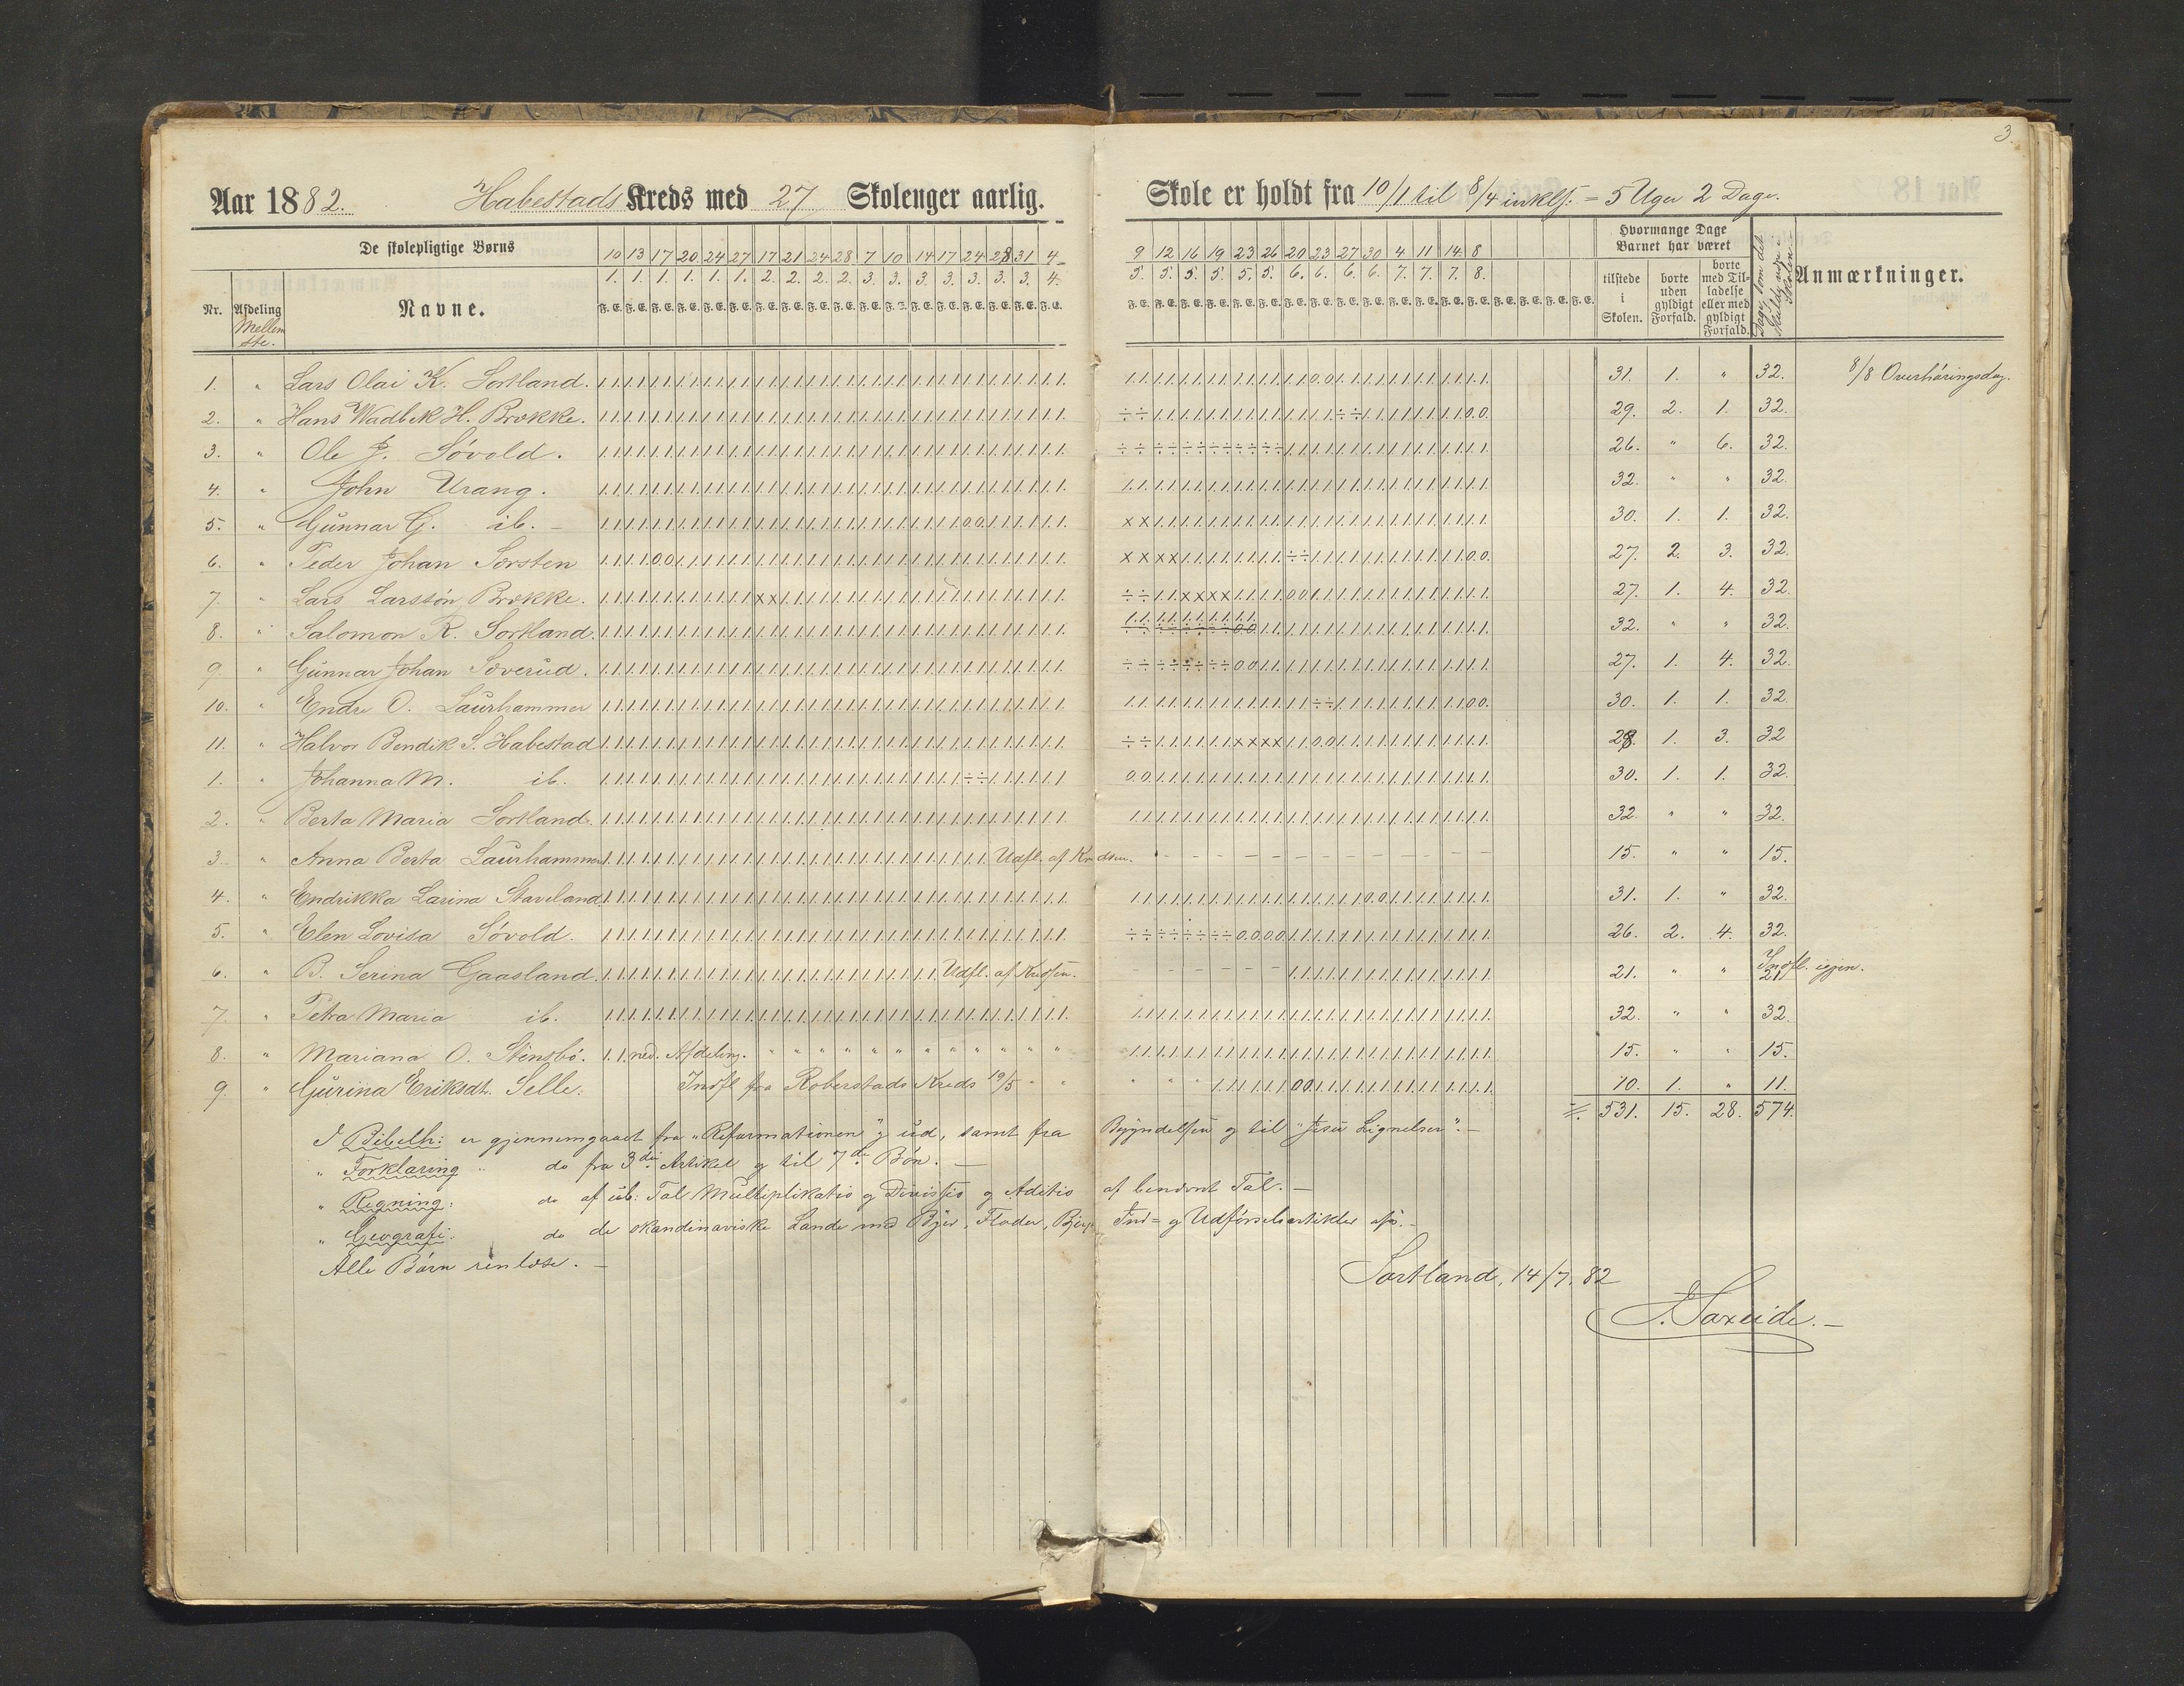 3.
Aar 1882. Habestads Kreds med 27 Skolenger aarlig. Skole er holdt fra 10/1 til 8/4 inkls. = 5 Uger 2 Dage.
De skolepligtige Børns
Hvormange Dage Barnet har været
Nr. Afdeling Navne.
tilstede i Skolen. borte uden gyldigt Forfald. borte med Tilladelse eller med gyldigt Forfald. Dage, som det skulde møde i Skolen. Anmærkninger.
Mellemste.
10 13 17 20 24 27 17 21 24 28 7 10 14 17 24 28 31 4 9 12 16 19 23 26 20 23 27 30 4 11 14 8
1. 1. 1. 1. 1. 1. 2. 2. 2. 2. 3. 3. 3. 3. 3. 3. 3. 4. 5. 5. 5. 5. 5. 5. 6. 6. 6. 6. 7. 7. 7. 8.
F. E. F. E. F. E. F. E. F. E. F. E. F. E. F. E. F. E. F. E. F. E. F. E. F. E. F. E. F. E. F. E. F. E. F. E.
1. " Lars Olai K. Sortland. 31. 1. " 32. 8/8 Overhøringsdag.
2. " Hans Wadbek H. Brokke. 29. 2. 1. 32.
3. " Ole J. Søvold. 26. " 6. 32.
4. " John Urang. 32. " " 32.
5. " Gunnar G. ib. – 30. 1. 1. 32.
6. " Peder Johan Sorsten 27. 2. 3. 32.
7. " Lars Larssøn Brokke. 27. 1. 4. 32.
8. " Salomon R. Sortland. 32. " " 32.
9. " Gunnar Johan Soverud. 27. 1. 4. 32.
10. " Endre O. Laurhammer 30. 1. 1. 32.
11. " Halvor Bendik S. Habestad 28. 1. 3. 32
1. " Johanna M. ib. 30. 1. 1. 32.
2. " Berta Maria Sortland. 32. " " 32.
3. " Anna Berta Laurhammer Udfl. af Kredsen. 15. " " 15.
4. " Endrikka Larina Staveland 31. 1. " 32.
5. " Elen Lovisa Søvold. 26. 2. 4. 32.
6. " B. Serina Gaasland. Udfl. af Kredsen. 21. " " 21 Indfl. igjen.
7. " Petra Maria ib. 32. " " 32.
8. " Mariana O. Stensbø. 1. 1. ned. Afdeling. 15. " " 15.
9. " Gurina Eriksdt. Selle. Indfl fra Roberstads Kreds 19/5 10. 1. " 11.
531. 15. 28. 574.
I Bibelh: er gjennemgaaet fra "Reformationen" og ud, samt fra Begyndelsen og til "Jesu Lignelser". –
" Forklaring " do fra 3die Artikel og til 7de Bøn. –
" Regning: do af ub: Tal Multiplikatio og Divissio og Aditio af benevnt Tal. –
" Geografi: do de skandinaviske Lande med Byer, Floder, Bjerge Ind= og Udførselsartikler osv. –
Alle Børn renlæse. –
Sortland, 14/7. 82
S. Saxeide. –